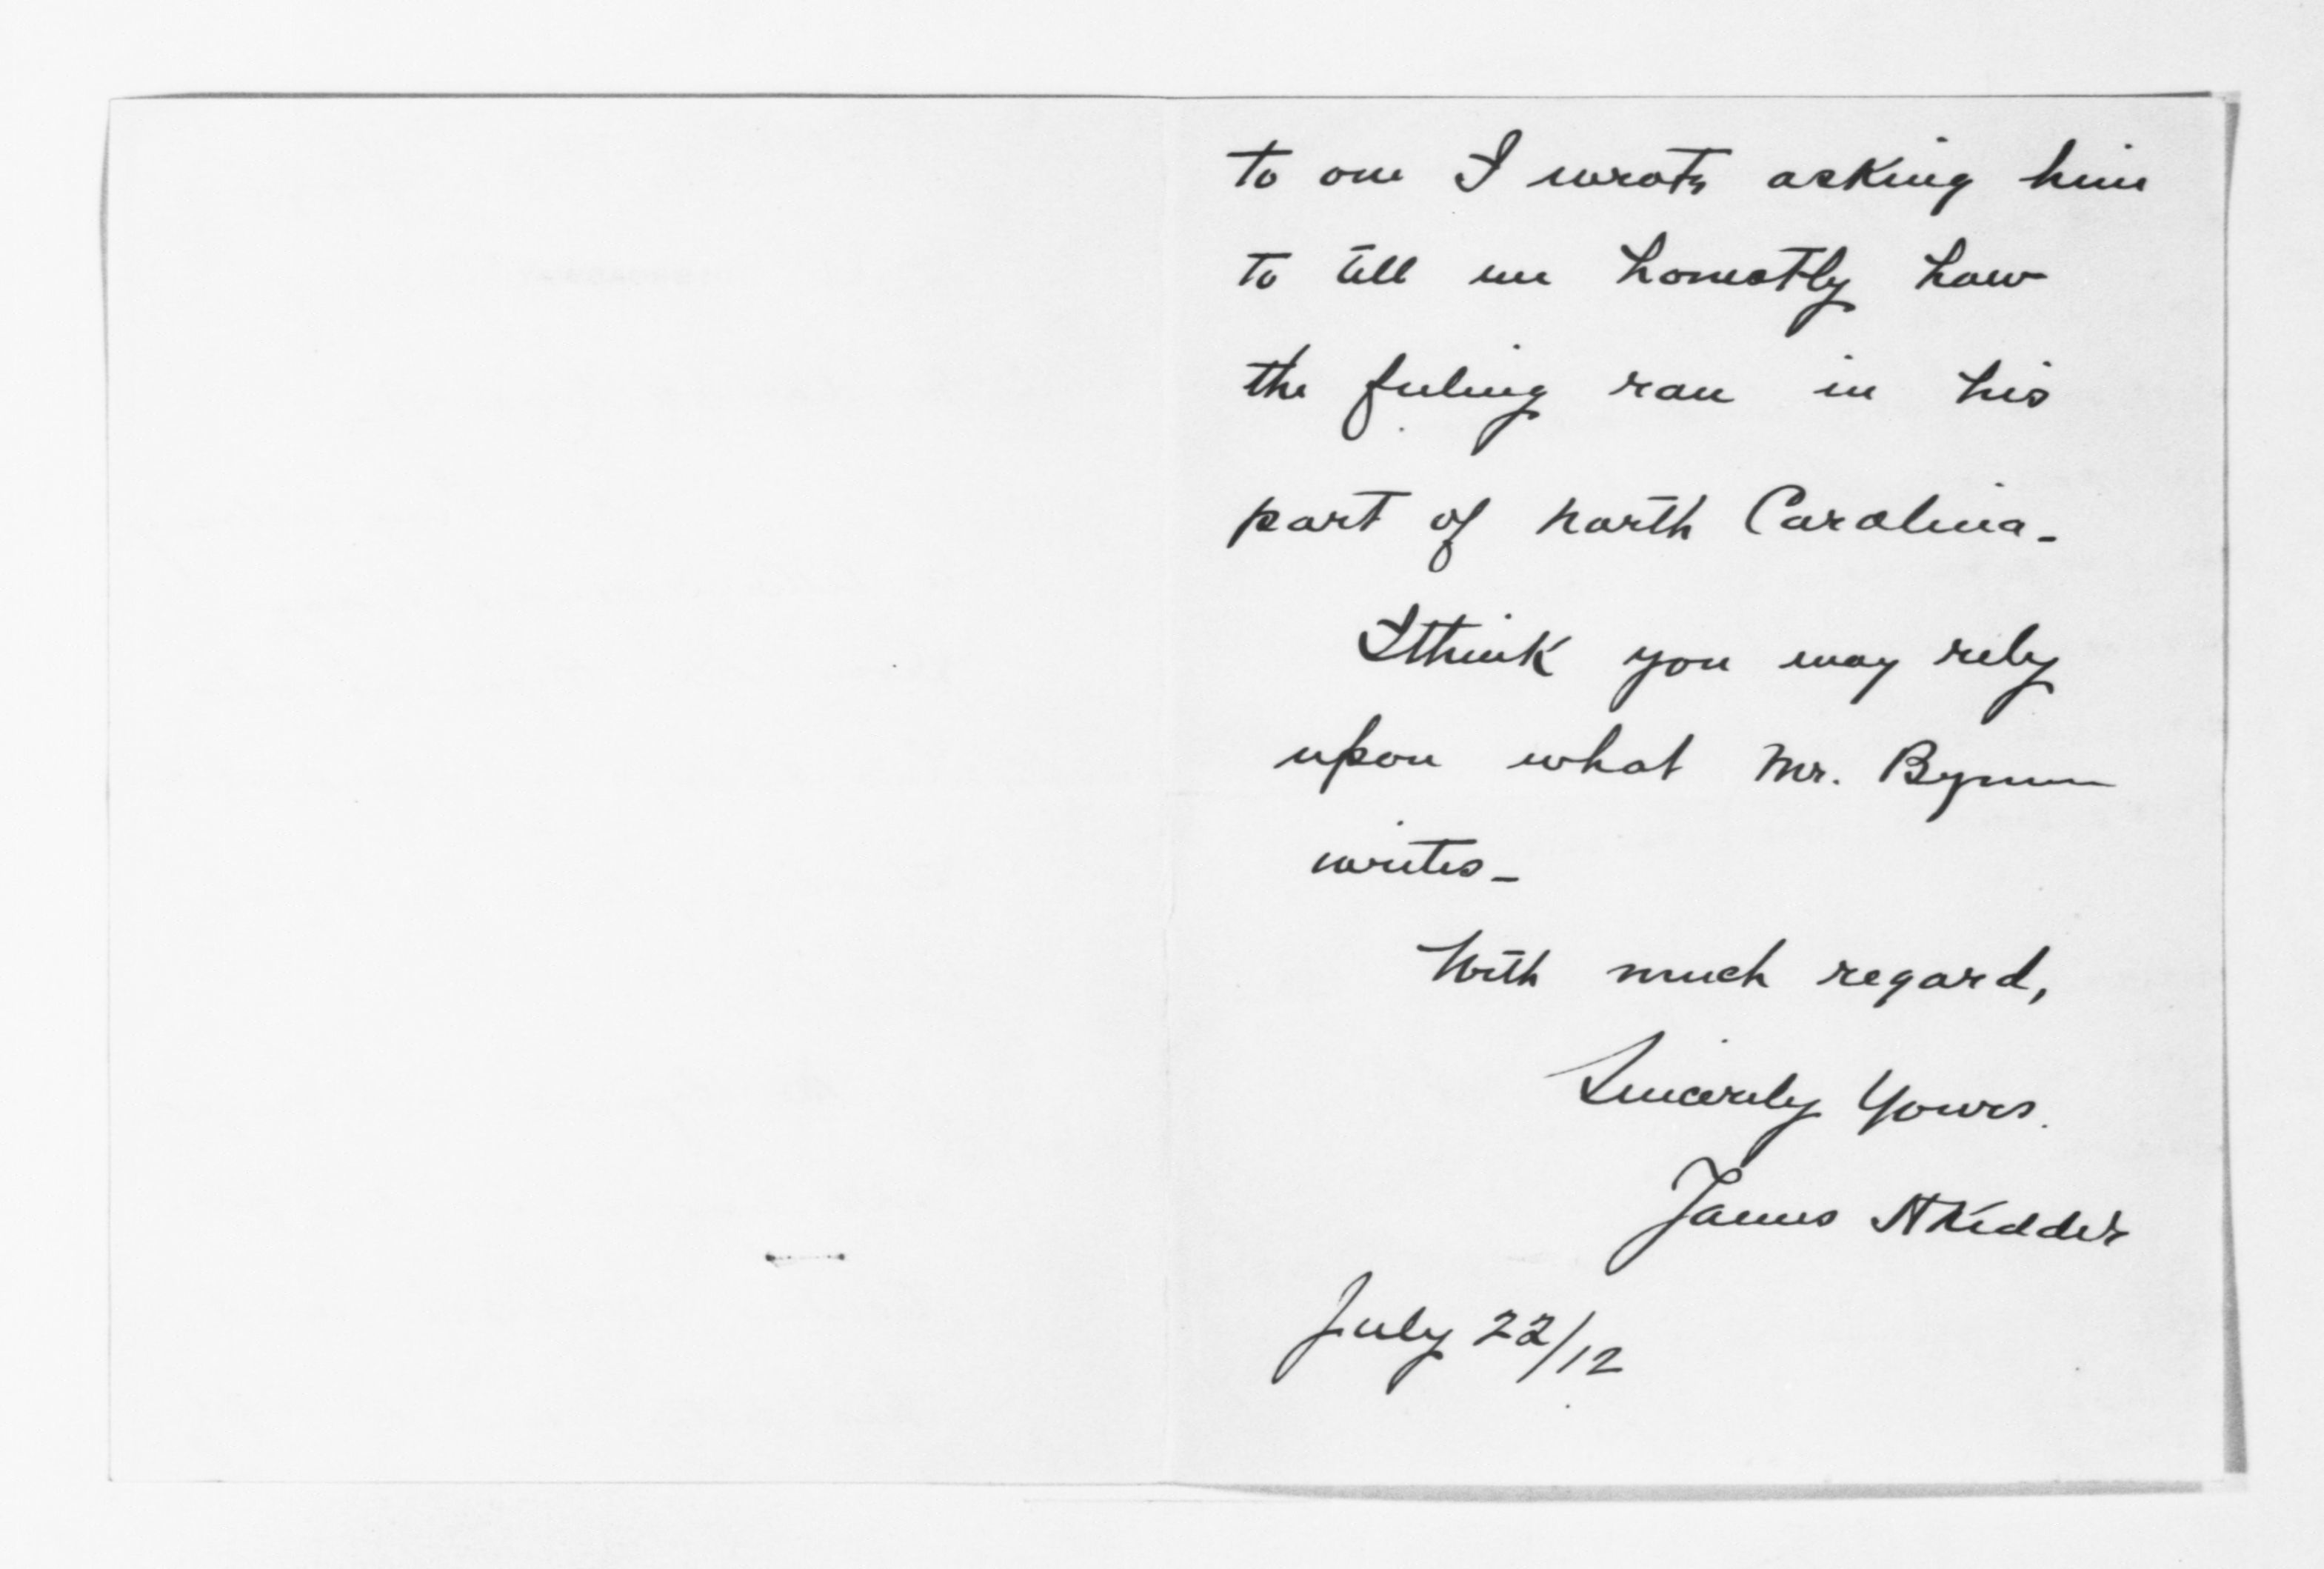 to one I wrote asking him
to tell me honestly how
the feeling ran in his
part of north Carolina-
I think you may rely
upon what Mr. Bynum
writes-
With much regard,
Sincerely Yours.
James H Kidder
July 22/12